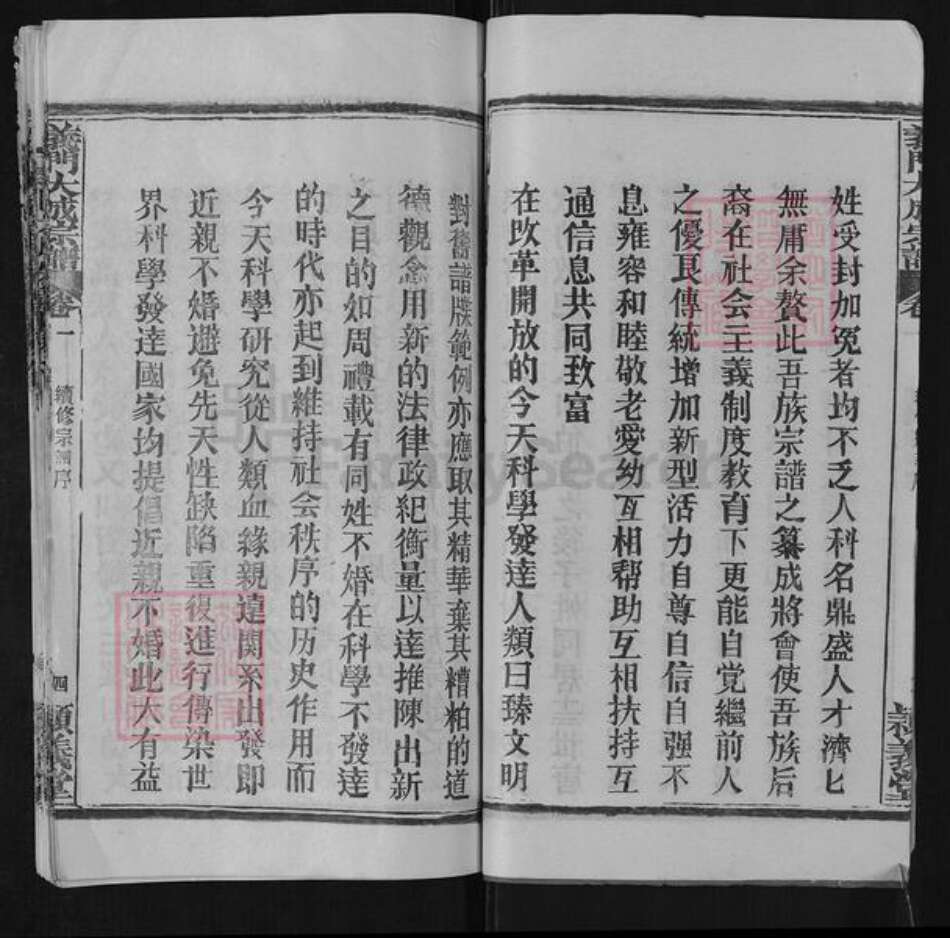 姓受封加冕者均不乏人科名鼎盛人才濟匕
無庸余赘此吾族宗譜之纂成將會使吾族后
裔在社会主義制度教育下更能自党繼前人
之優良傳統增加新型活力自尊自信自强不
息雍容和睦敬老愛幼互相幫助互相扶持互
通信息共同致富
在改革開放的今天科學發達人類日臻文明
對舊譜牒範例亦應取其精華棄其糟粕的道
德觀念用新的法律政紀衡量以達推陳出新
之目的如周禮載有同姓不婚在科學不發達
的時代亦起到維持社会秩序的历史作用而
今天科學研究從人類血緣親遠関系出發即
近親不婚避免先天性缺陷重復進行傳染世
界科學發達國家均提倡近親不婚此大有益
義門大成宗譜 卷一
續修宗譜序
四
穎義堂